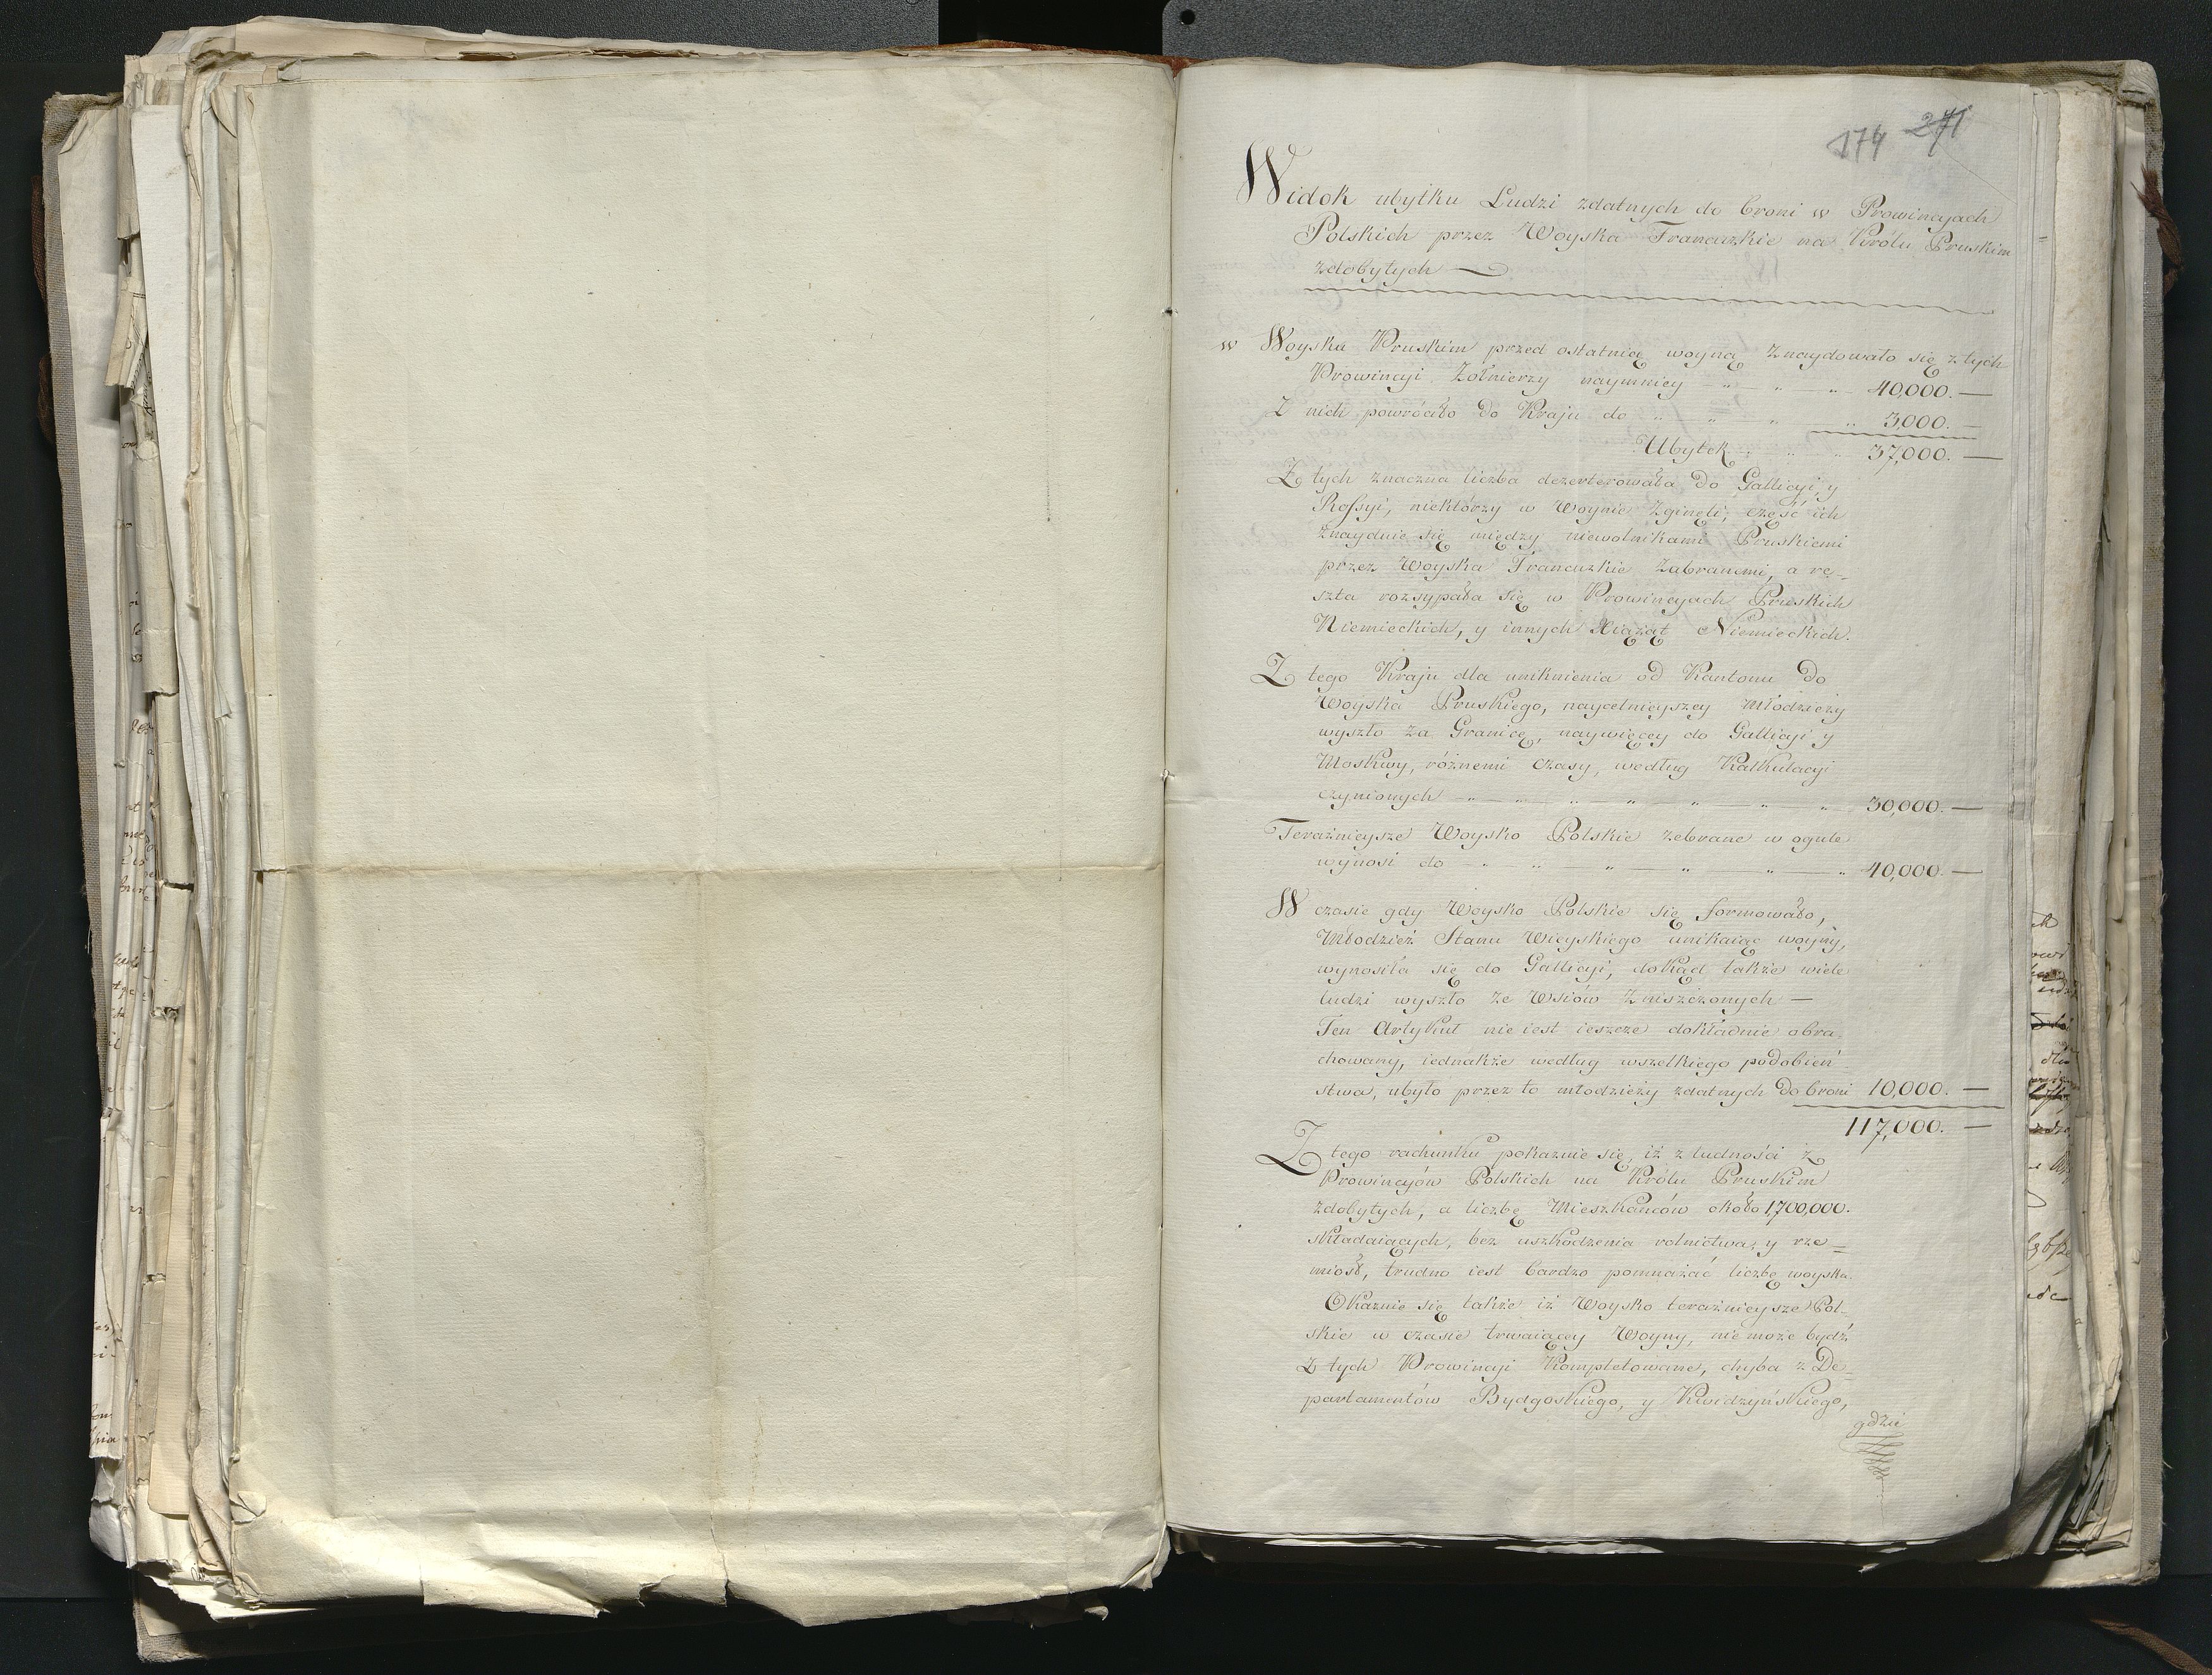 174 271
Widok ubytku Ludzi zdatnych do broni w Prowincyach
Polskich przez Woyska Francuzkie na Królu Pruskim
zdobytych
w Woysku Pruskim przed ostatnią woyną znaydowało się z tych
Prowincyi Żołnierzy naymniey - „ - „ - „ - 40,000. —
Z nich powróciło do Kraju do „ - „ - „ - „ 3,000. —
Ubytek - „ - „ - 37,000. —
Z tych znaczna liczba dezerterowała do Gallicyi, y
Rossyi, niektórzy w Woynie zginęli, część ich
znayduie się między niewolnikami Pruskiemi
przez Woyska Francuzkie zabranemi, a re-
szta rozsypała się w Prowincyach Pruskich
Niemieckich, y innych Xiążąt Niemieckich.
Z tego Kraju dla uniknienia od Kantonu do
Woyska Pruskiego, naycelnieyszey Młodzieży
wyszło za Granicę, naywięcey do Gallicyi y
Moskwy, różnemi czasy, według Kalkulacyi
czynionych - „ - „ - „ - „ - „ - „ - „ 30,000. —
Teraźnieysze Woysko Polskie zebrane w ogule
wynosi do - „ - „ - „ - „ - „ - „ 40,000. —
W czasie gdy Woysko Polskie się formowało,
Młodzież Stanu Wieyskiego unikaiąc woyny,
wynosiła się do Gallicyi, dokąd także wiele
ludzi wyszło ze Wsiów zniszczonych —
Ten Artykuł nie iest ieszcze dokładnie obra-
chowany, iednakże według wszelkiego podobień-
stwa, ubyło przez to młodzieży zdatnych do broni 10,000. —
117,000. —
Z tego rachunku pokazuie się, iż z ludności z
Prowincyów Polskich na Królu Pruskim
zdobytych, a liczbę Mieszkańców około 1700,000.
składaiących, bez uszkodzenia rolnictwa, y rze-
miosł, trudno iest bardzo pomnażać liczbę woyska.
Okazuie się także iż Woysko teraźnieysze Pol-
skie w czasie trwaiącey Woyny, nie może bydź
z tych Prowincyi Kompletowane, chyba z De-
partamentów Bydgoskiego, y Kwidzyńskiego,
gdzie